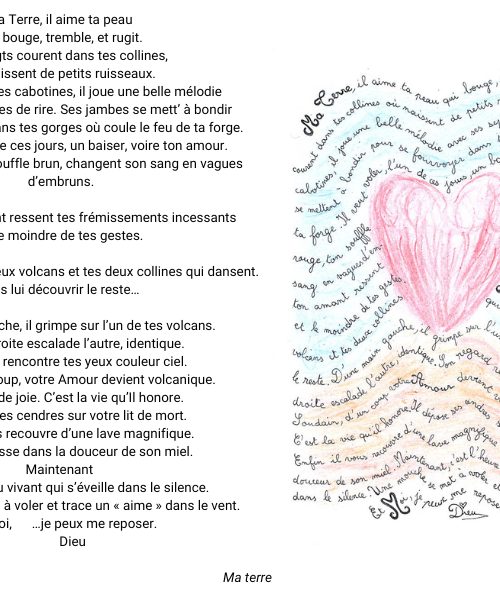 a Terre, il aime ta peau
bouge, tremble, et rugit.
gts courent dans tes collines,
issent de petits ruisseaux.
es cabotines, il joue une belle mélodie
es de rire. Ses jambes se mett’ à bondir
ans tes gorges où coule le feu de ta forge.
e ces jours, un baiser, voire ton amour.
ouffle brun, changent son sang en vagues
d’embruns.
nt ressent tes frémissements incessants
e moindre de tes gestes.
eux volcans et tes deux collines qui dansent.
s lui découvrir le reste…
che, il grimpe sur l’un de tes volcans.
roite escalade l’autre, identique.
rencontre tes yeux couleur ciel.
oup, votre Amour devient volcanique.
de joie. C’est la vie qu’Il honore.
es cendres sur votre lit de mort.
s recouvre d’une lave magnifique.
sse dans la douceur de son miel.
Maintenant
u vivant qui s’éveille dans le silence.
à voler et trace un « aime » dans le vent.
oi, …je peux me reposer.
Dieu
Ma Terre, il aime ta peau qui bouge,
courent dans tes collines où naissent de petits
cabotines, il joue une belle mélodie avec ses
se mettent à bondir pour se fourvoyer dans
ta forge. Il veut voler, l'un de ces jours, un
rouge, ton souffle
sang en vagues d'em
ton amant ressent
et le moindre de tes gestes.
volcans et tes deux collines
le reste. D'une main gauche, il grimpe sur l'u
droite escalade l'autre, identique. Son regard
Soudain, d'un coup, votre Amour devient
C'est la vie qu'il honore. Il dépose ses cendres
Enfin il vous recouvre d'une lave magnifique
douceur de son miel. Maintenant, c'est l'heure
dans le silence. Une mouche se met à voler et
Et Moi, je peux me repose
Dieu
Ma terre